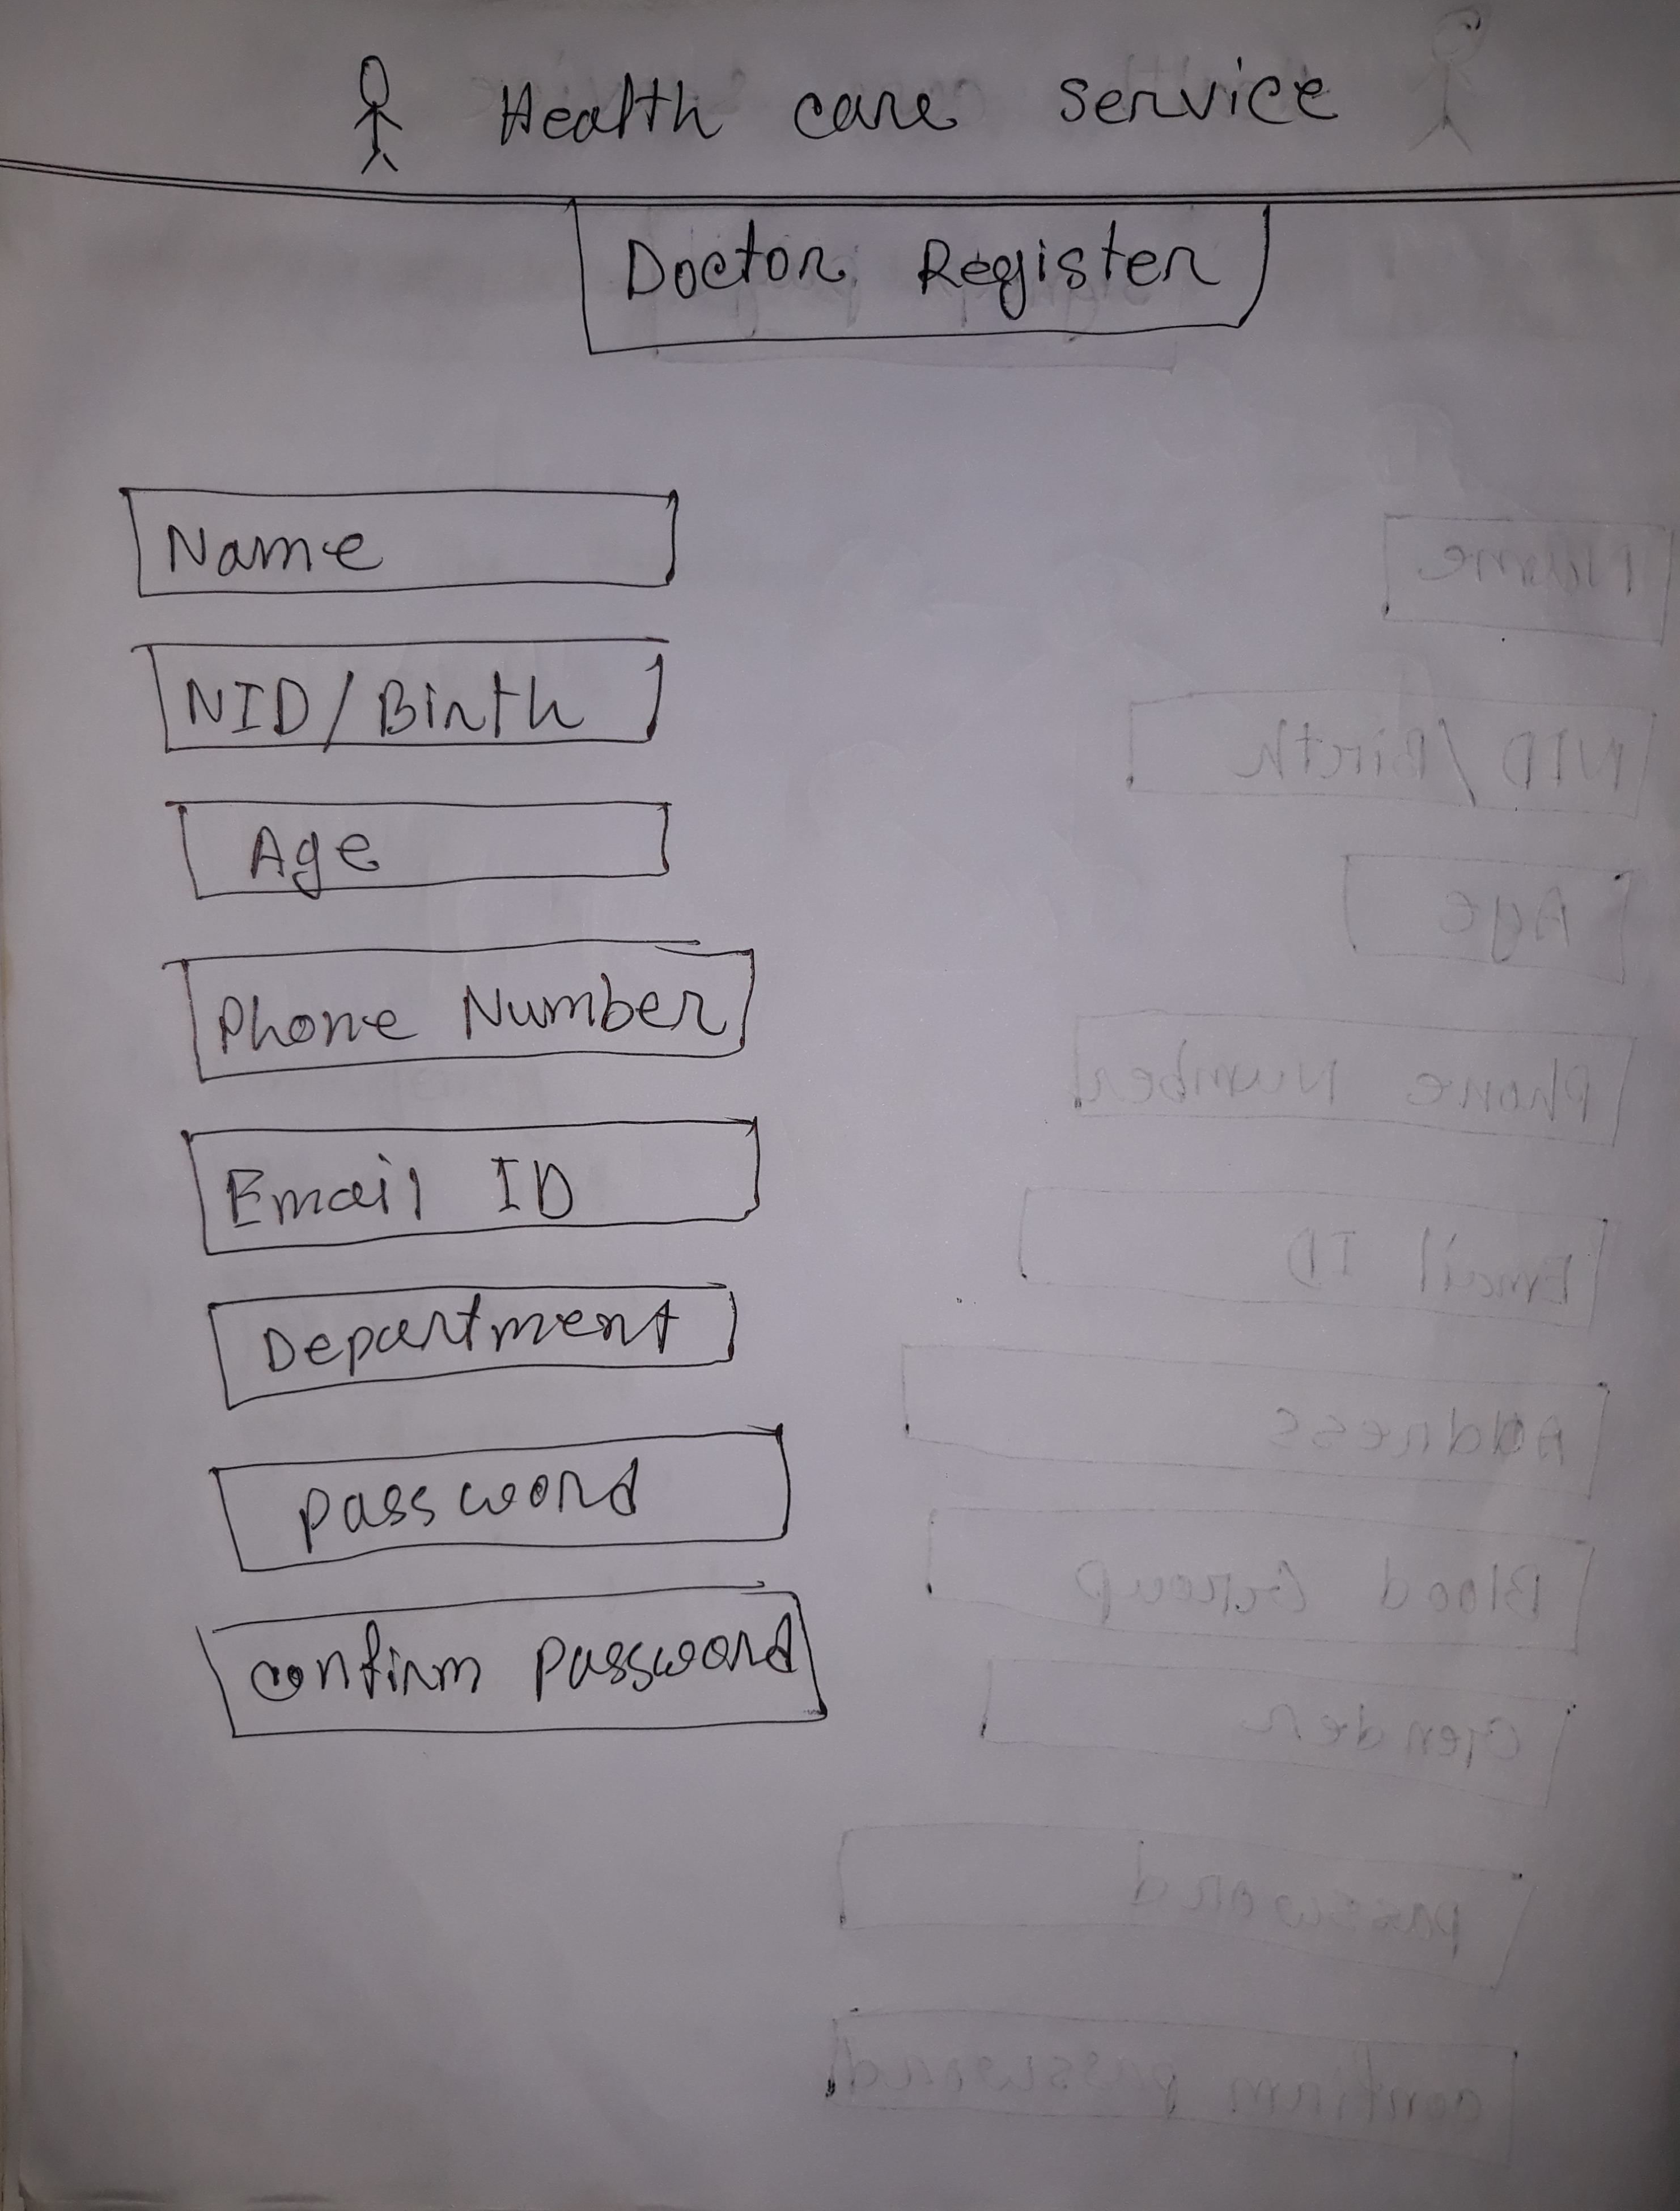 Health care service
Doctor Register
Name
NID/Birth
Age
Phone Number
Email ID
Department
password
confirm password